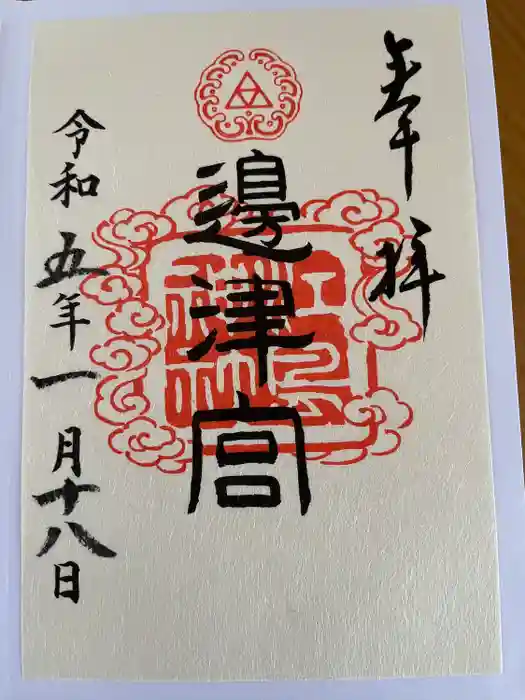 奉拝
邊津宮
令和五年一月十八日